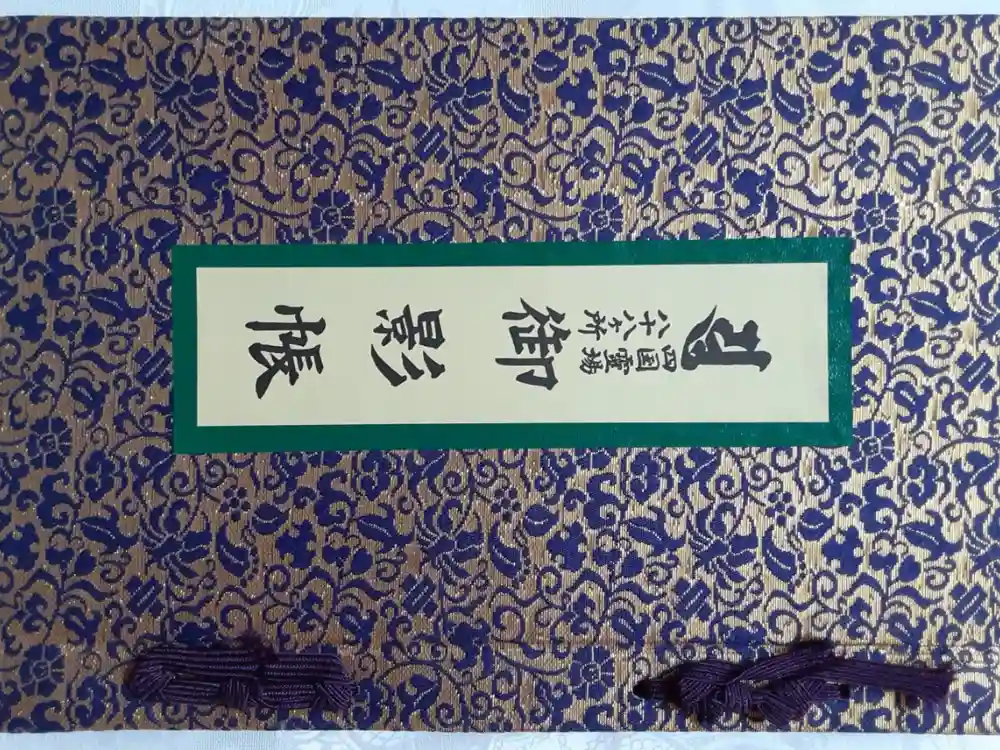 四国霊場
八十八ヶ所
御影帳